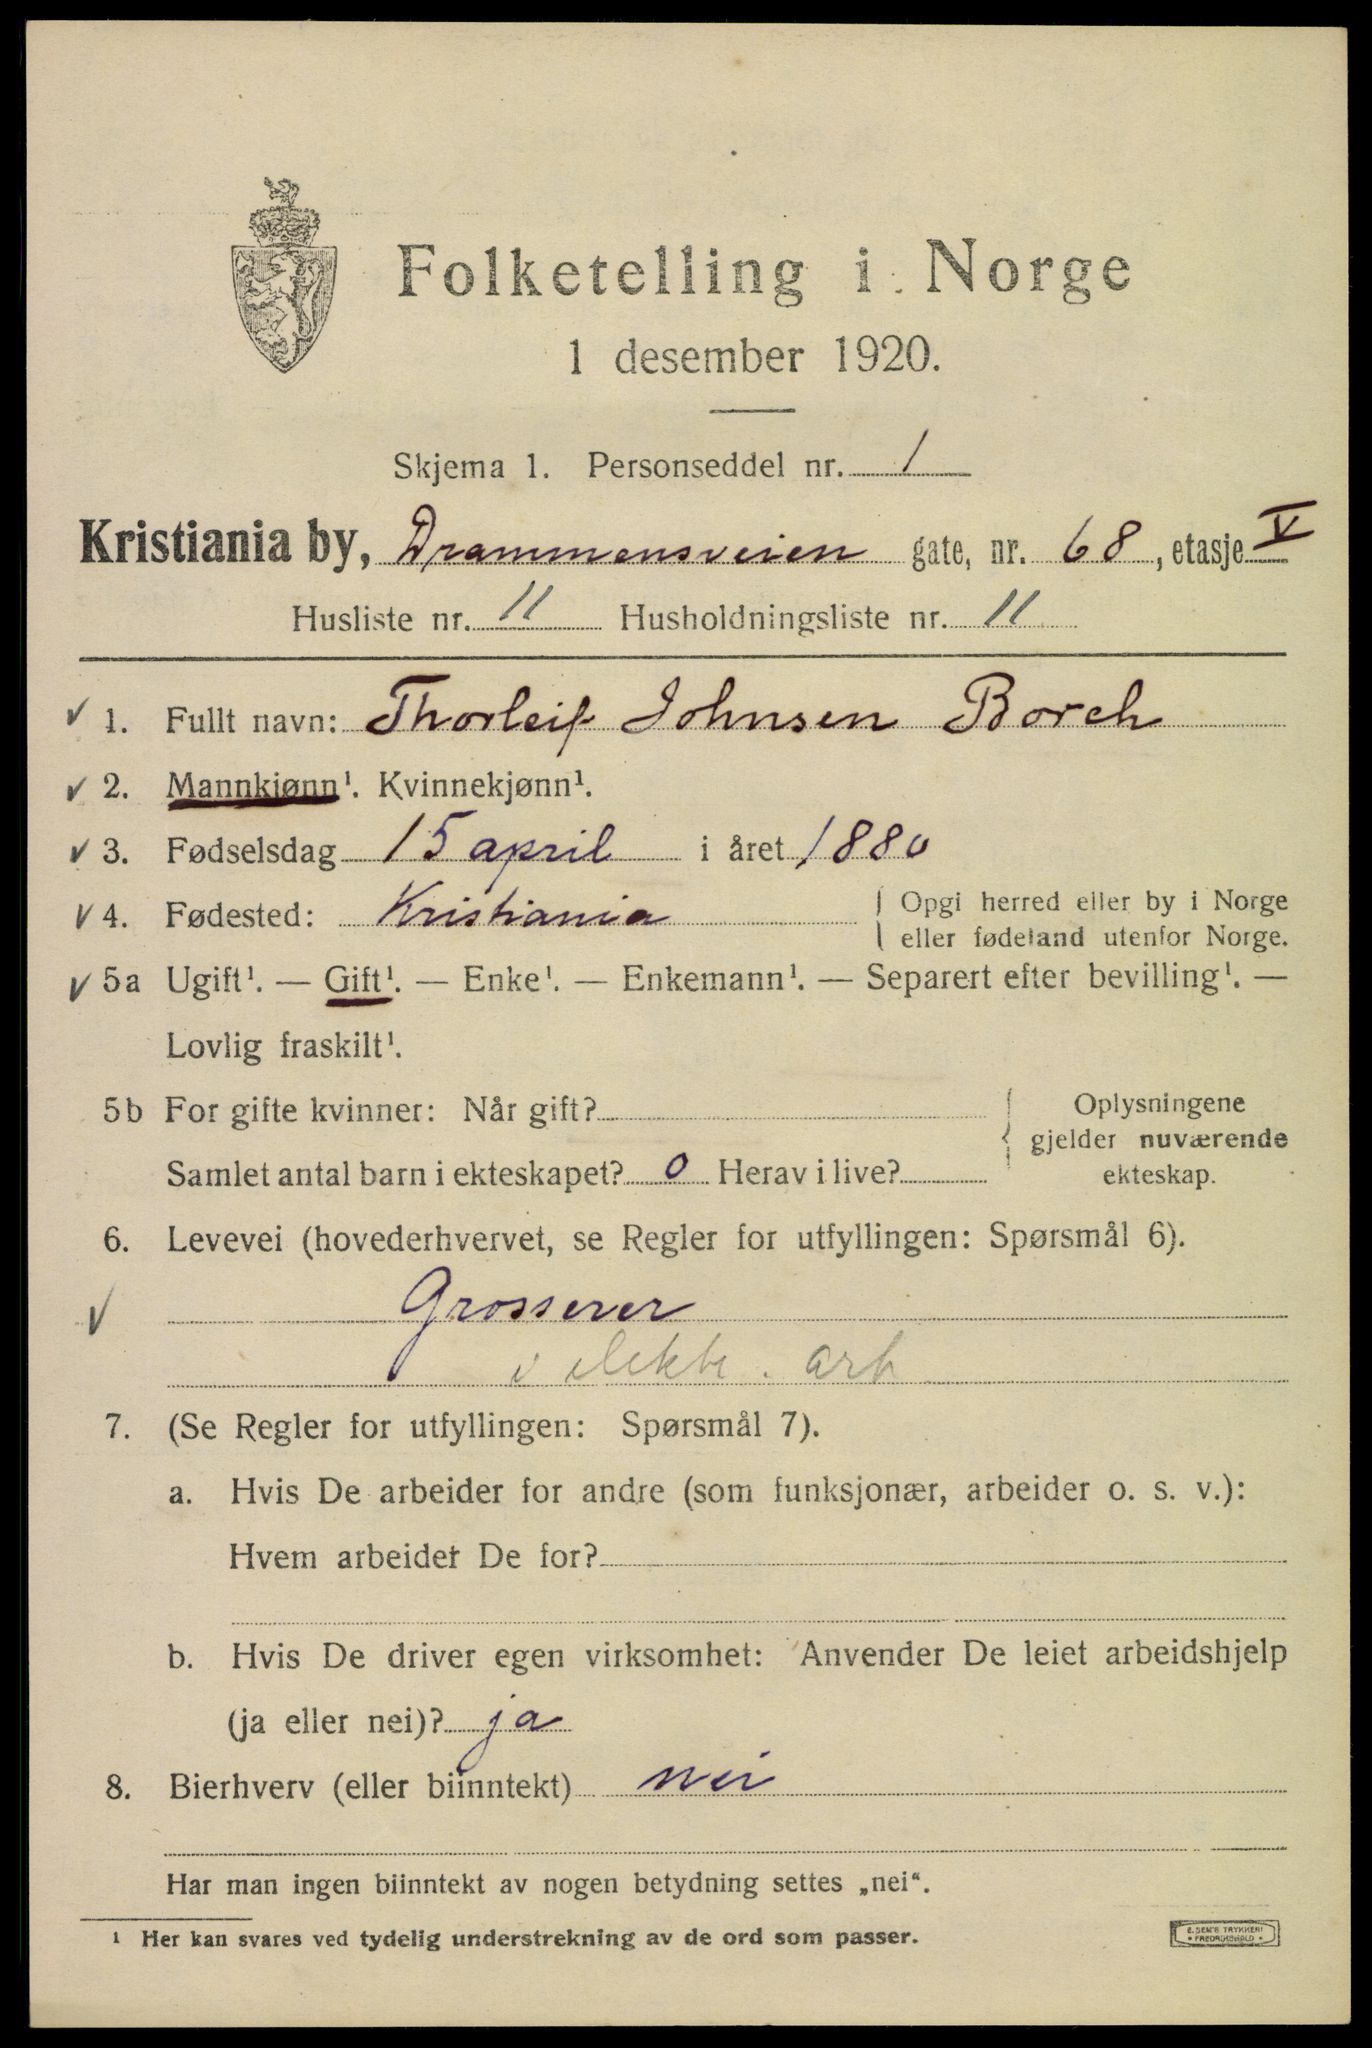 Folketelling i Norge
1 desember 1920.
Skjema 1. Personseddel nr. 1
Kristiania by, Drammensveien gate, nr. 68, etasje V
Husliste nr. 11 Husholdningsliste nr. 11
✓ 1. Fullt navn: Thorleif Johnsen Borch
✓ 2. Mannkjønn¹. Kvinnekjønn¹.
✓ 3. Fødselsdag 15 april i året 1880
✓ 4. Fødested: Kristiania
Opgi herred eller by i Norge
eller fødeland utenfor Norge.
✓ 5a Ugift¹. — Gift¹. — Enke¹. — Enkemann¹. — Separert efter bevilling¹. —
Lovlig fraskilt¹.
5b For gifte kvinner: Når gift?
Samlet antal barn i ekteskapet? 0 Herav i live?
Oplysningene
gjelder nuværende
ekteskap.
6. Levevei (hovederhvervet, se Regler for utfyllingen: Spørsmål 6).
✓ Grosserer
i elektr. art
7. (Se Regler for utfyllingen: Spørsmål 7).
a. Hvis De arbeider for andre (som funksjonær, arbeider o. s. v.):
Hvem arbeider De for?
b. Hvis De driver egen virksomhet: Anvender De leiet arbeidshjelp
(ja eller nei)? ja
8. Bierhverv (eller biinntekt) nei
Har man ingen biinntekt av nogen betydning settes „nei“.
¹ Her kan svares ved tydelig understrekning av de ord som passer.
E. SEM'S TRYKKERI
• FREDRIKSHALD •